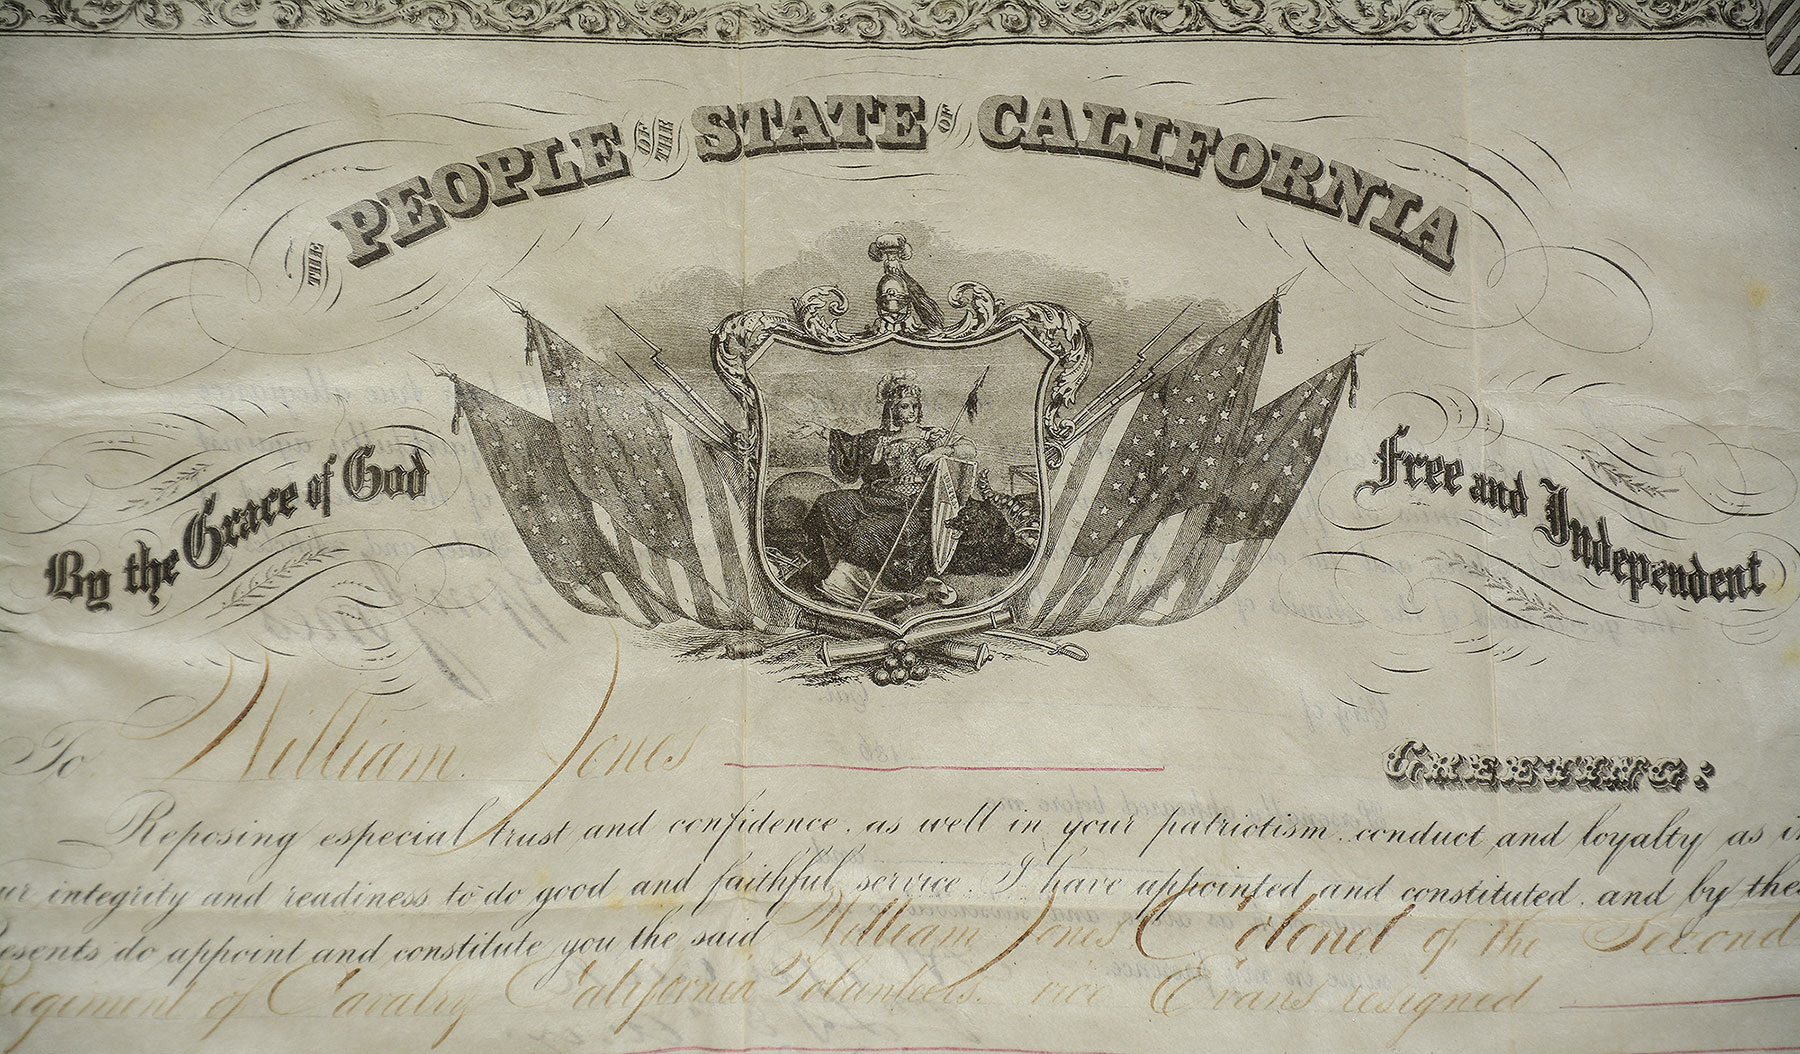 THE PEOPLE OF THE STATE OF CALIFORNIA
By the Grace of God Free and Independent
To William Jones GREETING:
Reposing especial trust and confidence, as well in your patriotism, conduct and loyalty as in
ur integrity and readiness to do good and faithful service. I have appointed and constituted, and by thes
esents do appoint and constitute you the said William Jones Colonel of the Second
Regiment of Cavalry California Volunteers, vice Evans resigned